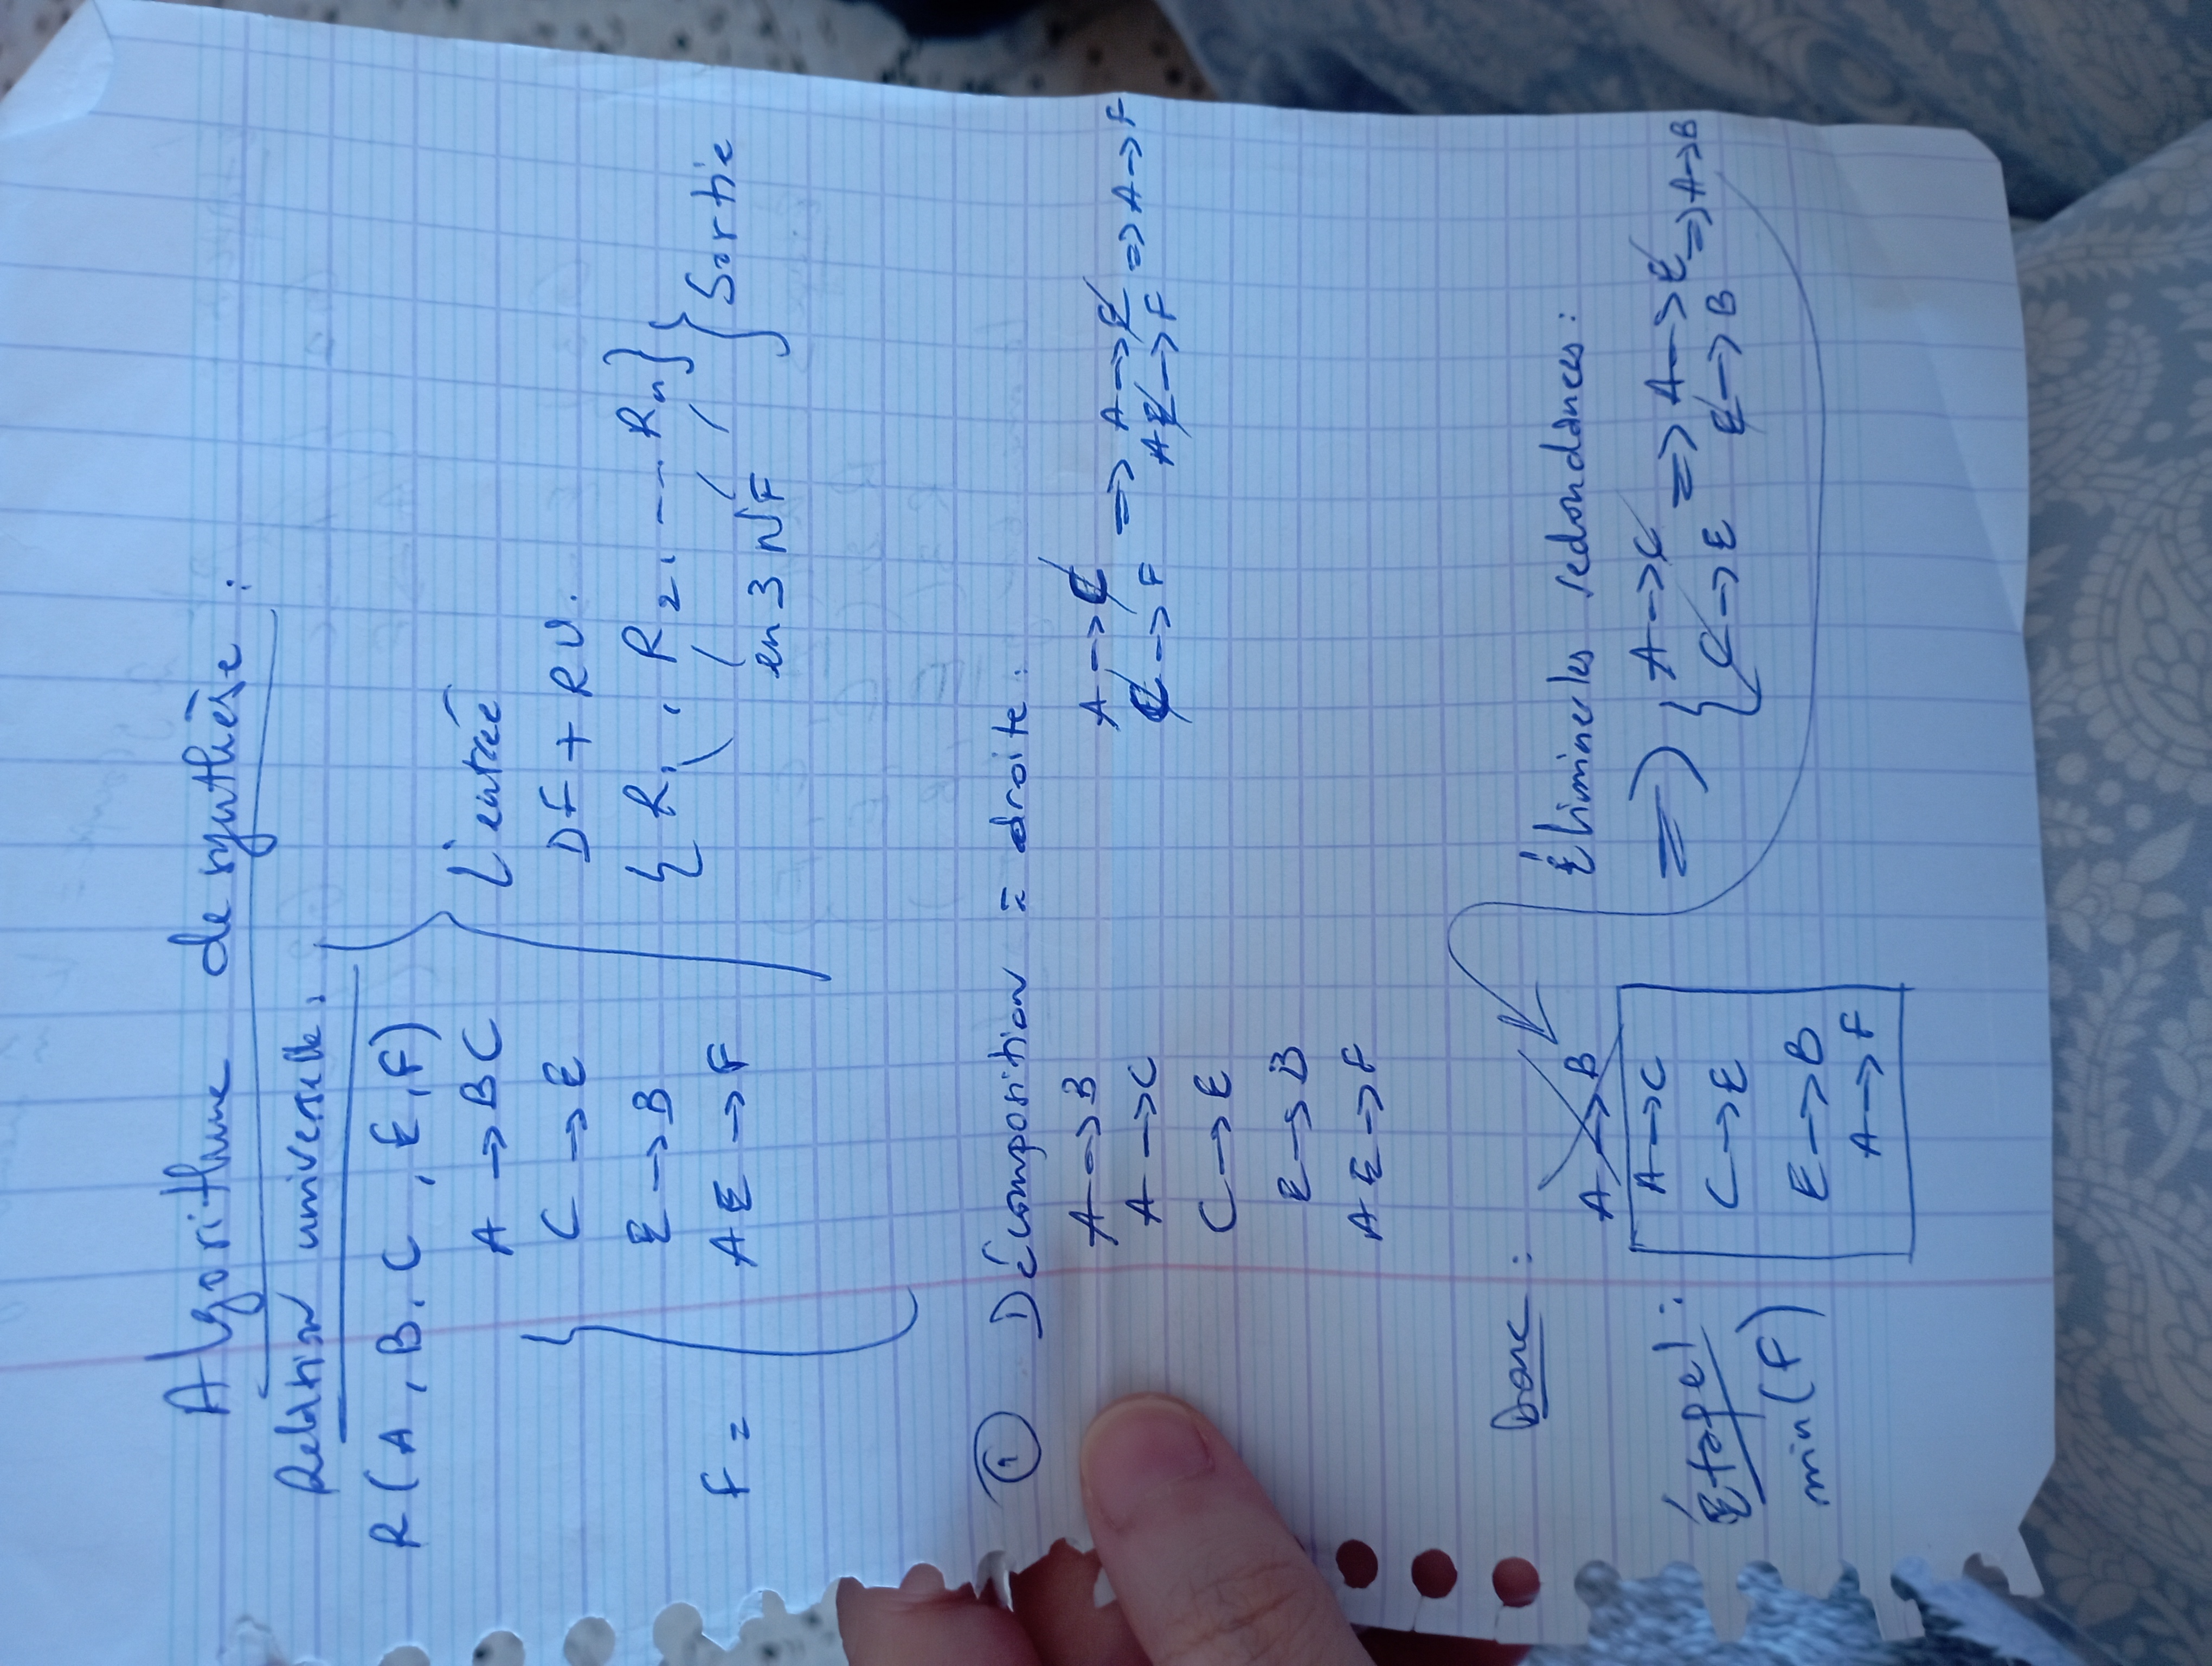 Algorithme de synthèse :
Relation universelle :
R ( A , B , C , E , F )
A → BC
C → E
E → B
AE → F
F =
L'entrée
DF + RU.
{ R1 , R2 , --- Rn }
en 3 NF
Sortie
① Décomposition à droite :
A → B
A → C
C → E
E → B
AE → F
A → C
C → F
⇒ A → E
AE → F
⇒ A → F
Donc :
A → B
Étape 1 :
min(F)
A → C
C → E
E → B
A → F
Éliminer les redondances :
⇒ { A → C
C → E
⇒ A → E
E → B
⇒ A → B